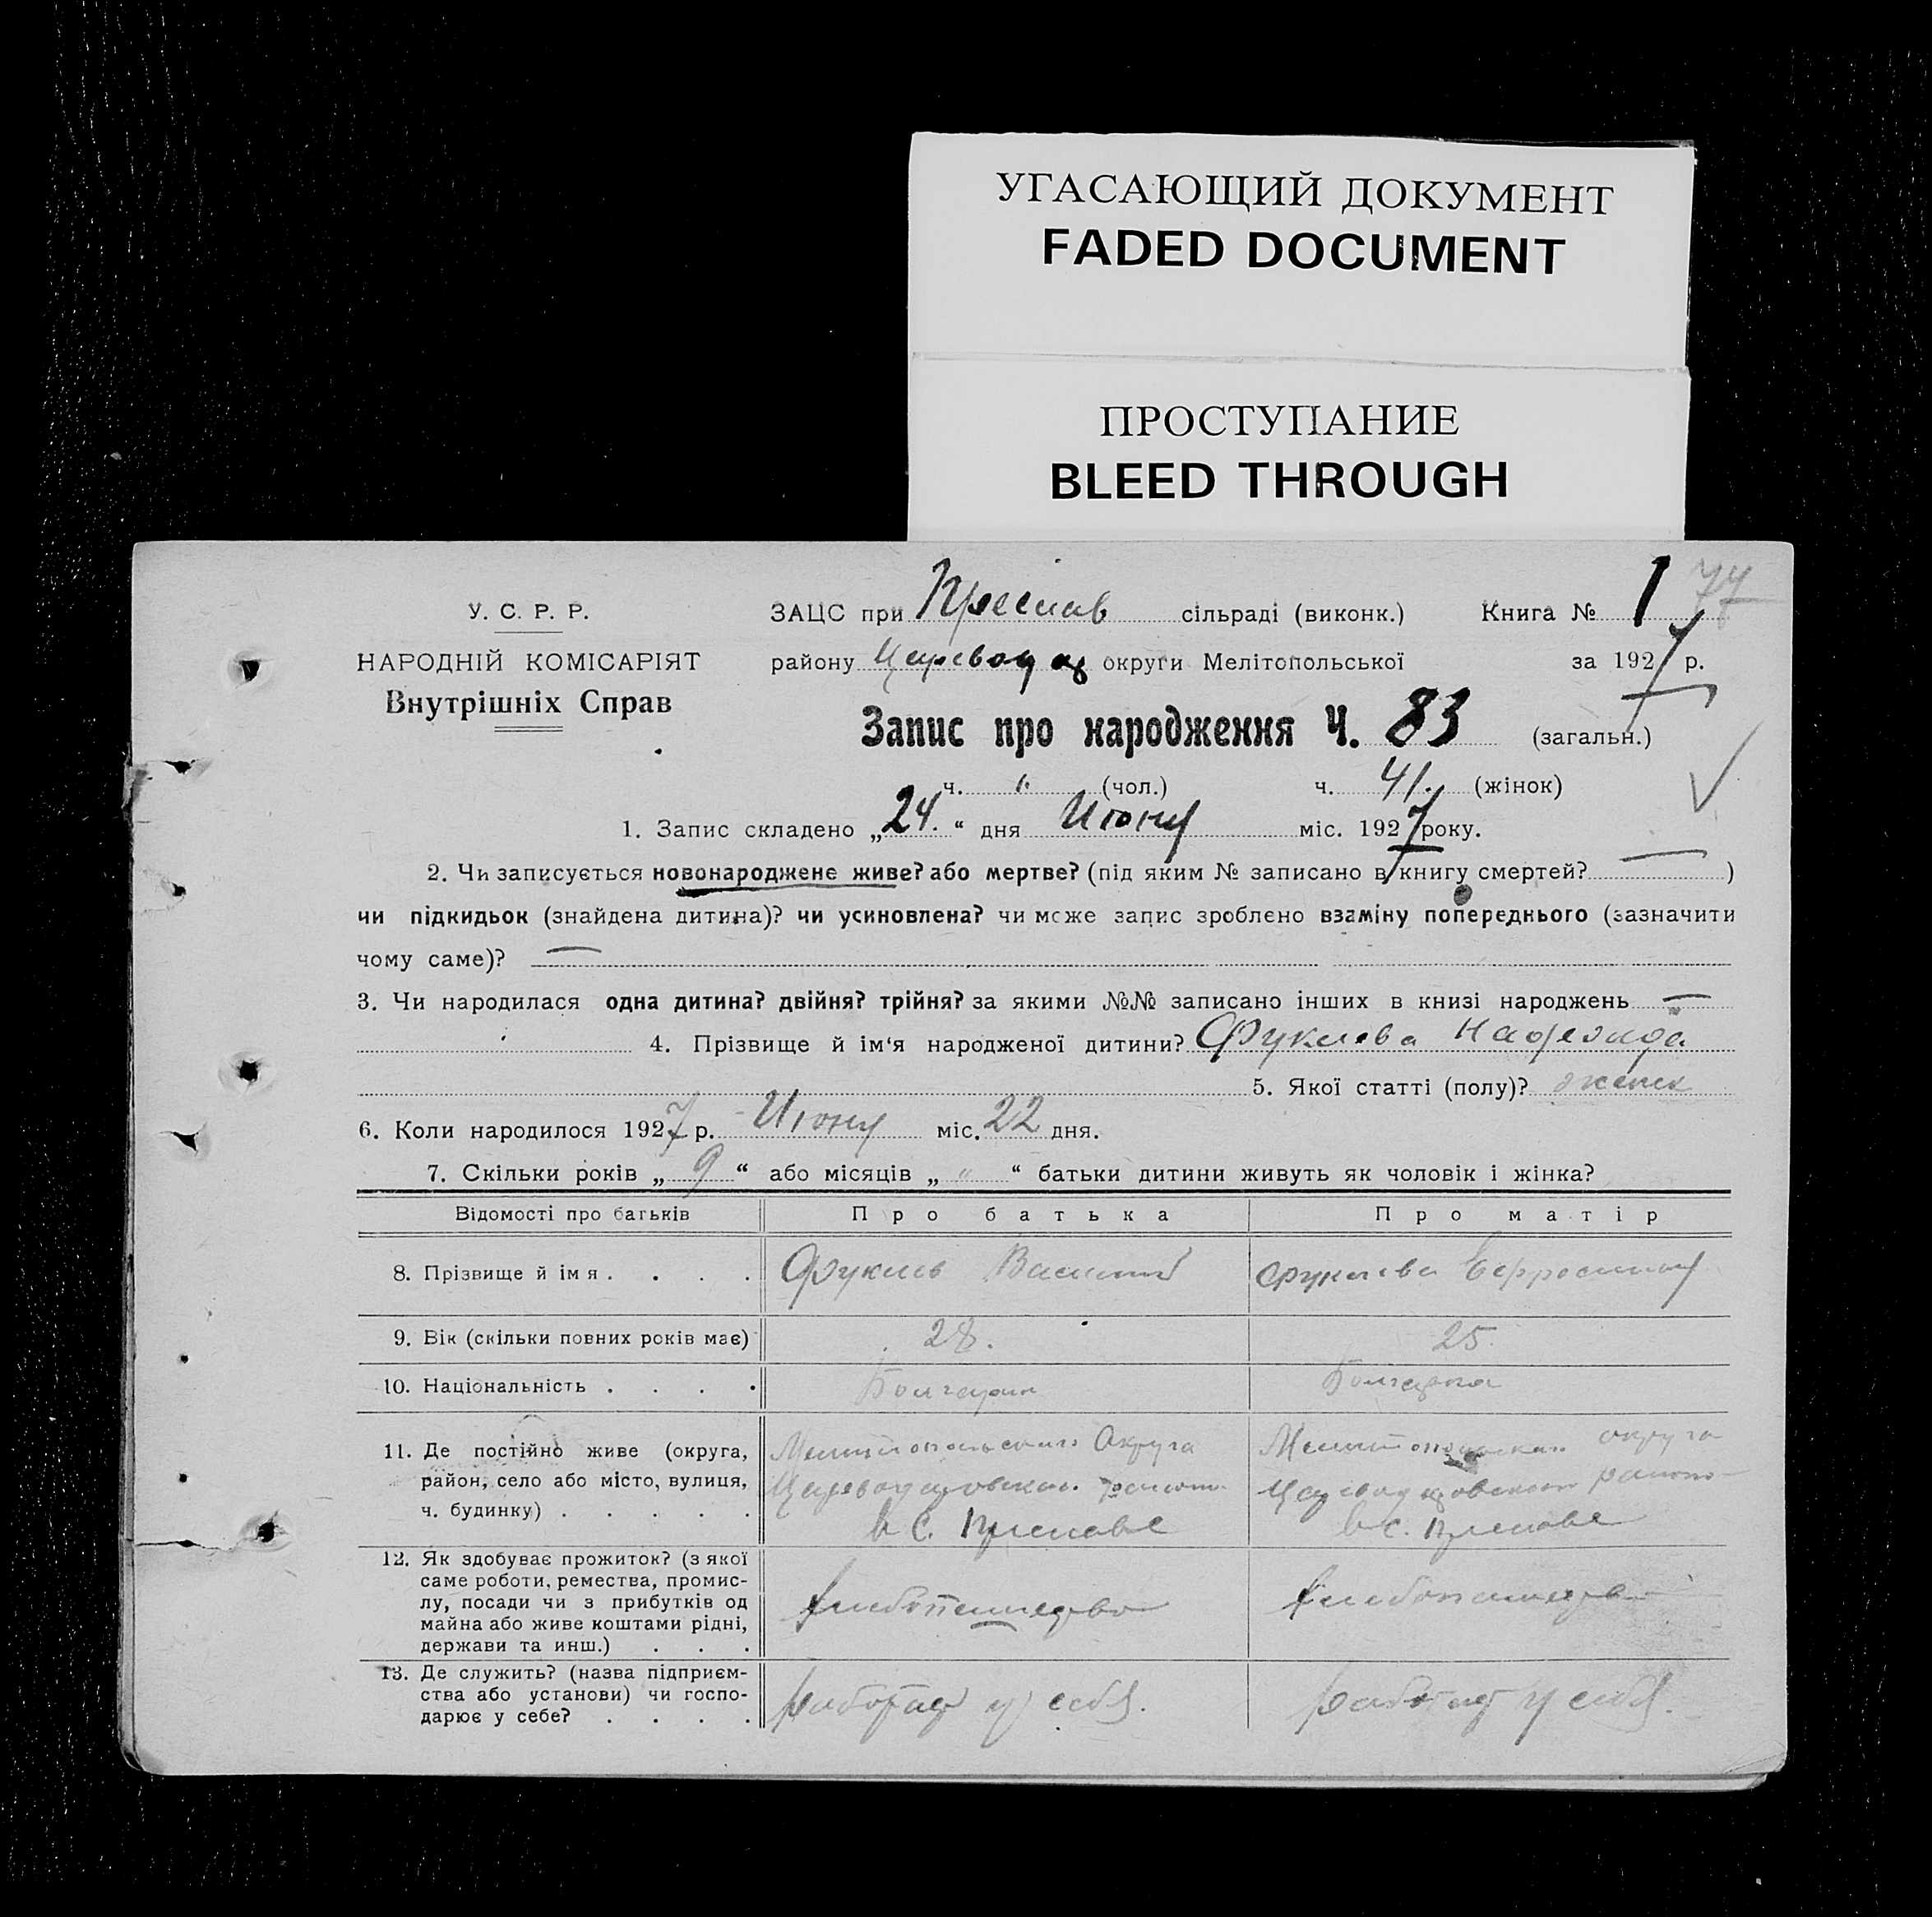 УГАСАЮЩИЙ ДОКУМЕНТ
FADED DOCUMENT
ПРОСТУПАНИЕ
BLEED THROUGH
У. С. Р. Р.
НАРОДНІЙ КОМІСАРІЯТ
Внутрішніх Справ
ЗАЦС при Преслав сільраді (виконк.) Книга № 1 74
району округи Мелітопольської за 1927 р.
Запис про народження Ч. 83 (загальн.)
ч. " (чол.) ч. 41. (жінок)
1. Запис складено „24.“ дня Июня міс. 1927 року.
2. Чи записується новонароджене живе? або мертве? (під яким № записано в книгу смертей? — )
чи підкидьок (знайдена дитина)? чи усиновлена? чи може запис зроблено взаміну попереднього (зазначити
чому саме)? —
3. Чи народилася одна дитина? двійня? трійня? за якими №№ записано інших в книзі народжень —
4. Прізвище й ім'я народженої дитини? Фуклева Надежда
5. Якої статті (полу)? женск
6. Коли народилося 1927 р. Июня міс. 22 дня.
7. Скільки років „ 9 “ або місяців „ " “ батьки дитини живуть як чоловік і жінка?
Відомості про батьків Про батька Про матір
8. Прізвище й імя . . . . Фуклев Василий Фуклева Ефросиния
9. Вік (скільки повних років має) 28. 25.
10. Національність . . . . Болгарин Болгарка
11. Де постійно живе (округа, Мелитопольского Округа Мелитопольского округа
район, село або місто, вулиця, района района
ч. будинку) . . . . . в С. Преславе в С. Преславе
12. Як здобуває прожиток? (з якої
саме роботи, ремества, промис-
лу, посади чи з прибутків од хлебопашество хлебопашество
майна або живе коштами рідні,
держави та инш.) . . .
13. Де служить? (назва підприєм-
ства або установи) чи госпо- работает у себя. работает у себя.
дарює у себе? . . . .